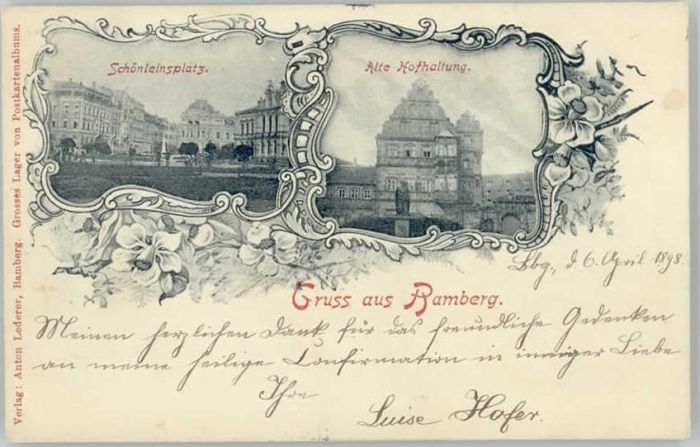 Schönleinsplatz.
Alte Hofhaltung.
Verlag: Anton Lederer, Bamberg. Grosses Lager von Postkartenalbums.
Bbg., d 6. April 1898.
Gruss aus Bamberg.
Meinen herzlichen Dank für das freundliche Gedenken
an meine heilige Confirmation in inniger Liebe
Ihre
Luise Hofer.